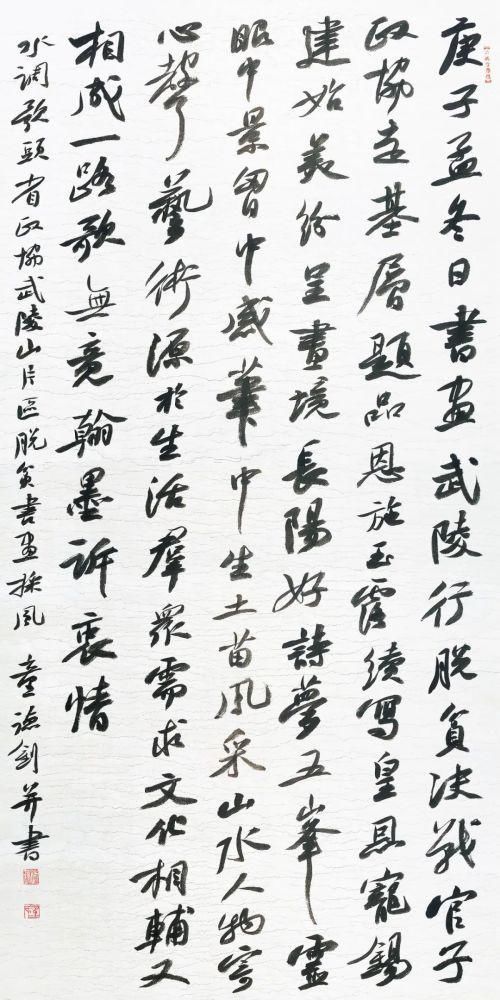 庚子孟冬日書畫武陵行脫貧決戰官子
政協走基層題品恩施玉露續寫皇恩寵錫
建始美紛呈畫境長陽好詩夢五峯靈
眼中景胸中感筆中生土苗風采山水人物寄
心聲藝術源於生活羣眾需求文化相輔又
相成一路歌無竟翰墨訴衷情
水調歌頭省政協武陵山片區脫貧書畫採風 童德劍并書